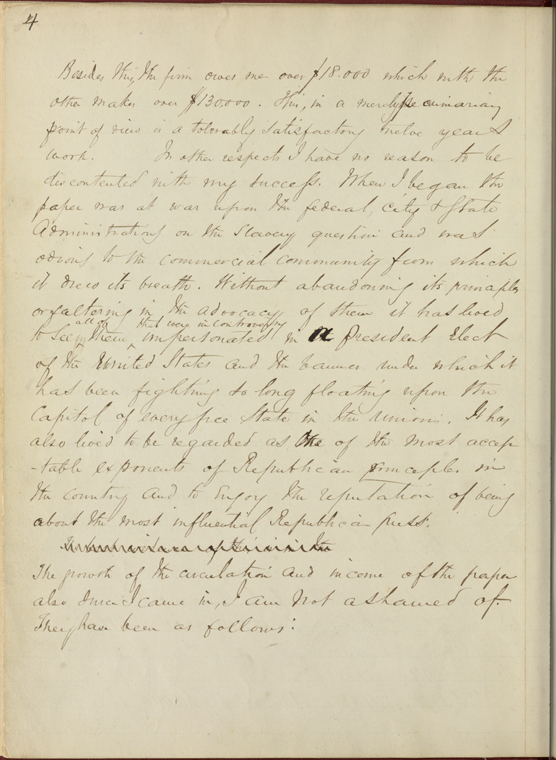 4
Besides this, the firm owes me over $18.000 which with the
other makes over $130.000. This, in a merely pecuniary
point of view is a tolerably satisfactory twelve years
work. In other respects I have no reason to be
discontented with my success. When I began the
paper was at war upon the federal, city & State
Administrations on the Slavery question and was
odious to the commercial community from which
it drew its breath. Without abandoning its principles
or faltering in the advocacy of them it has lived
all of that were in controversy
to see them impersonated in a President Elect
of the United States and the banner under which it
has been fighting so long floating upon the
Capitol of every free State in the union. It has
also lived to be regarded as One of the most accep
-table exponents of Republican principles in
the country and to enjoy the reputation of being
about the most influential Republican press.
The growth of the circulation and income of the paper
also since I came in, I am not ashamed of.
They have been as follows: